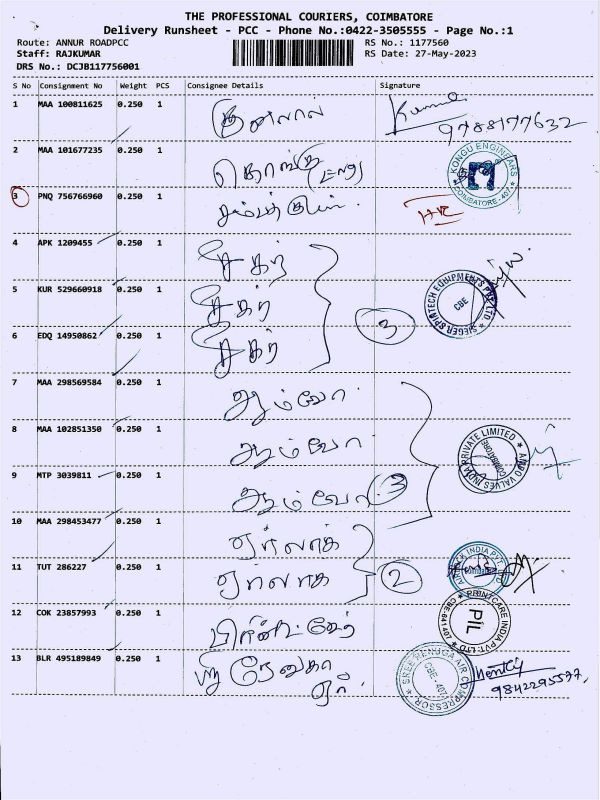 THE PROFESSIONAL COURIERS, COIMBATORE
Delivery Runsheet - PCC - Phone No.:0422-3505555 - Page No.:1
Route: ANNUR ROADPCC
RS No.: 1177560
Staff: RAJKUMAR
RS Date: 27-May-2023
DRS No.: DCJB117756001
S No Consignment No Weight PCS Consignee Details Signature
1 MAA 100811625 0.250 1 குனலால்
9788177632
2 MAA 101677235 0.250 1 கொங்கு
KONGU ENGINEARS COIMBATORE-407
3 PNQ 756766960 0.250 1
4 APK 1209455 0.250 1 சீகர்
5 KUR 529660918 0.250 1 சீகர் 3
SIEGER SPINTECH EQUIPMENTS PVT. LTD CBE
6 EDQ 14950862 0.250 1 சீகர்
7 MAA 298569584 0.250 1 ஆம்வோ
8 MAA 102851350 0.250 1 ஆம்வோ
AMPO VALVES INDIA PRIVATE LIMITED COIMBATORE
9 MTP 3039811 0.250 1 ஆம்வோ 3
10 MAA 298453477 0.250 1 ஏர்லாக்
11 TUT 286227 0.250 1 ஏர்லாக் 2
AIRLOCK INDIA PVT. LTD
12 COK 23857993 0.250 1 பிரிண்ட் கேர்
PRINTCARE INDIA PVT. LTD CBE-641 407 PIL
13 BLR 495189849 0.250 1 ஸ்ரீ ரேணுகா
ஏர்.
SREE RENUGA AIR COMPRESSOR CBE - 407
9842295577,